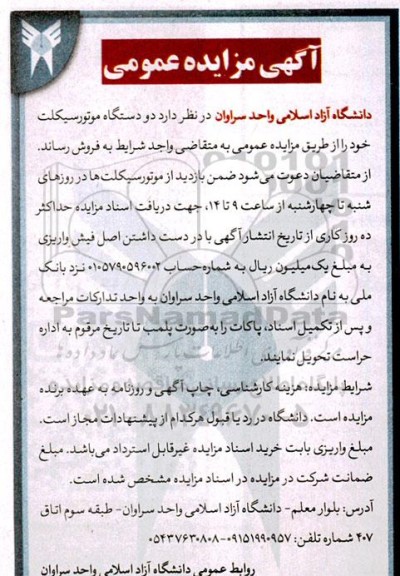 آگهی مزایده عمومی
دانشگاه آزاد اسلامی واحد سراوان در نظر دارد دو دستگاه موتورسیکلت
خود را از طریق مزایده عمومی به متقاضی واجد شرایط به فروش رساند.
از متقاضیان دعوت می‌شود ضمن بازدید از موتورسیکلت‌ها در روزهای
شنبه تا چهارشنبه از ساعت ۹ تا ۱۴، جهت دریافت اسناد مزایده حداکثر
ده روز کاری از تاریخ انتشار آگهی با در دست داشتن اصل فیش واریزی
به مبلغ یک میلیون ریال به شماره حساب ۰۱۰۵۷۹۰۵۹۶۰۰۲ نزد بانک
ملی به نام دانشگاه آزاد اسلامی واحد سراوان به واحد تدارکات مراجعه
ParsNamadData
و پس از تکمیل اسناد، پاکات را به‌صورت پلمب تا تاریخ مرقوم به اداره
حراست تحویل نمایند.
شرایط مزایده: هزینه کارشناسی، چاپ آگهی و روزنامه به عهده برنده
مزایده است. دانشگاه در رد یا قبول هرکدام از پیشنهادات مجاز است.
مبلغ واریزی بابت خرید اسناد مزایده غیرقابل استرداد می‌باشد. مبلغ
ضمانت شرکت در مزایده در اسناد مزایده مشخص شده است.
آدرس: بلوار معلم- دانشگاه آزاد اسلامی واحد سراوان- طبقه سوم اتاق
۴۰۷ شماره تلفن: ۰۹۱۵۱۹۹۰۹۵۷-۰۵۴۳۷۶۳۰۸۰۸
روابط عمومی دانشگاه آزاد اسلامی واحد سراوان